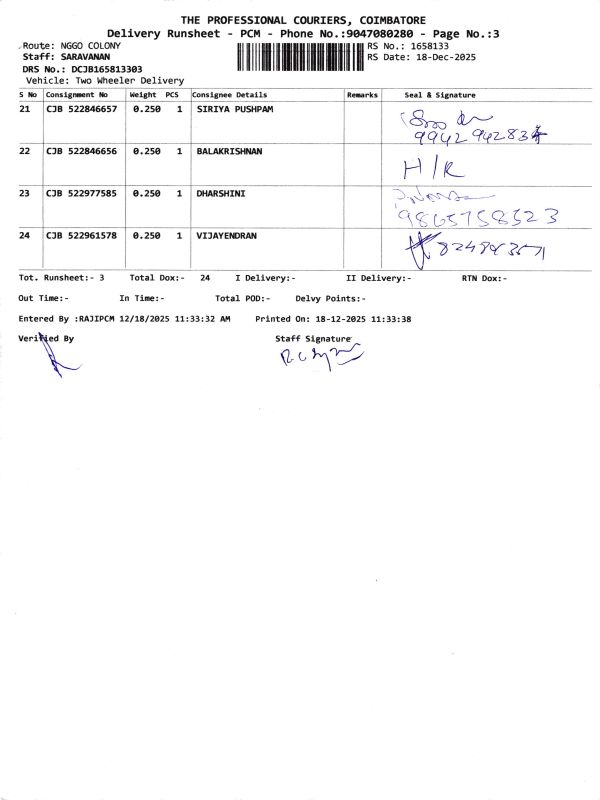 THE PROFESSIONAL COURIERS, COIMBATORE
Delivery Runsheet - PCM - Phone No.:9047080280 - Page No.:3
Route: NGGO COLONY RS No.: 1658133
Staff: SARAVANAN RS Date: 18-Dec-2025
DRS No.: DCJB165813303
Vehicle: Two Wheeler Delivery
S No Consignment No Weight PCS Consignee Details Remarks Seal & Signature
21 CJB 522846657 0.250 1 SIRIYA PUSHPAM
22 CJB 522846656 0.250 1 BALAKRISHNAN H/R
23 CJB 522977585 0.250 1 DHARSHINI
9865758523
24 CJB 522961578 0.250 1 VIJAYENDRAN
Tot. Runsheet:- 3 Total Dox:- 24 I Delivery:- II Delivery:- RTN Dox:-
Out Time:- In Time:- Total POD:- Delvy Points:-
Entered By :RAJIPCM 12/18/2025 11:33:32 AM Printed On: 18-12-2025 11:33:38
Verified By Staff Signature